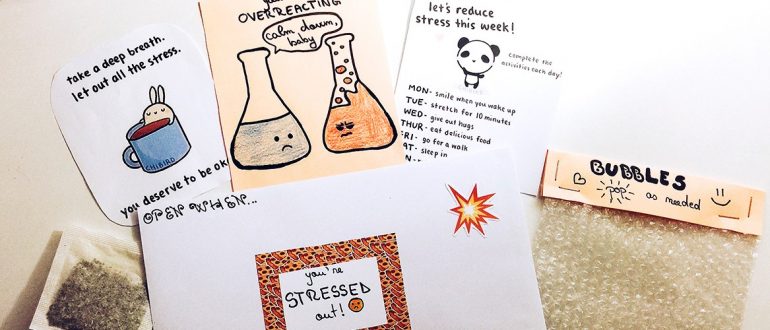 take a deep breath.
let out all the stress.
CHIBIRD
you deserve to be ok
OVERREACTING
calm down,
baby
let's reduce
stress this week!
complete the
activities each day!
MON- smile when you wake up
TUE- stretch for 10 minutes
WED- give out hugs
THUR- eat delicious food
FRI- go for a walk
SAT- sleep in
OPEN WHEN...
you're
STRESSED
out!
BUBBLES
pop
as needed